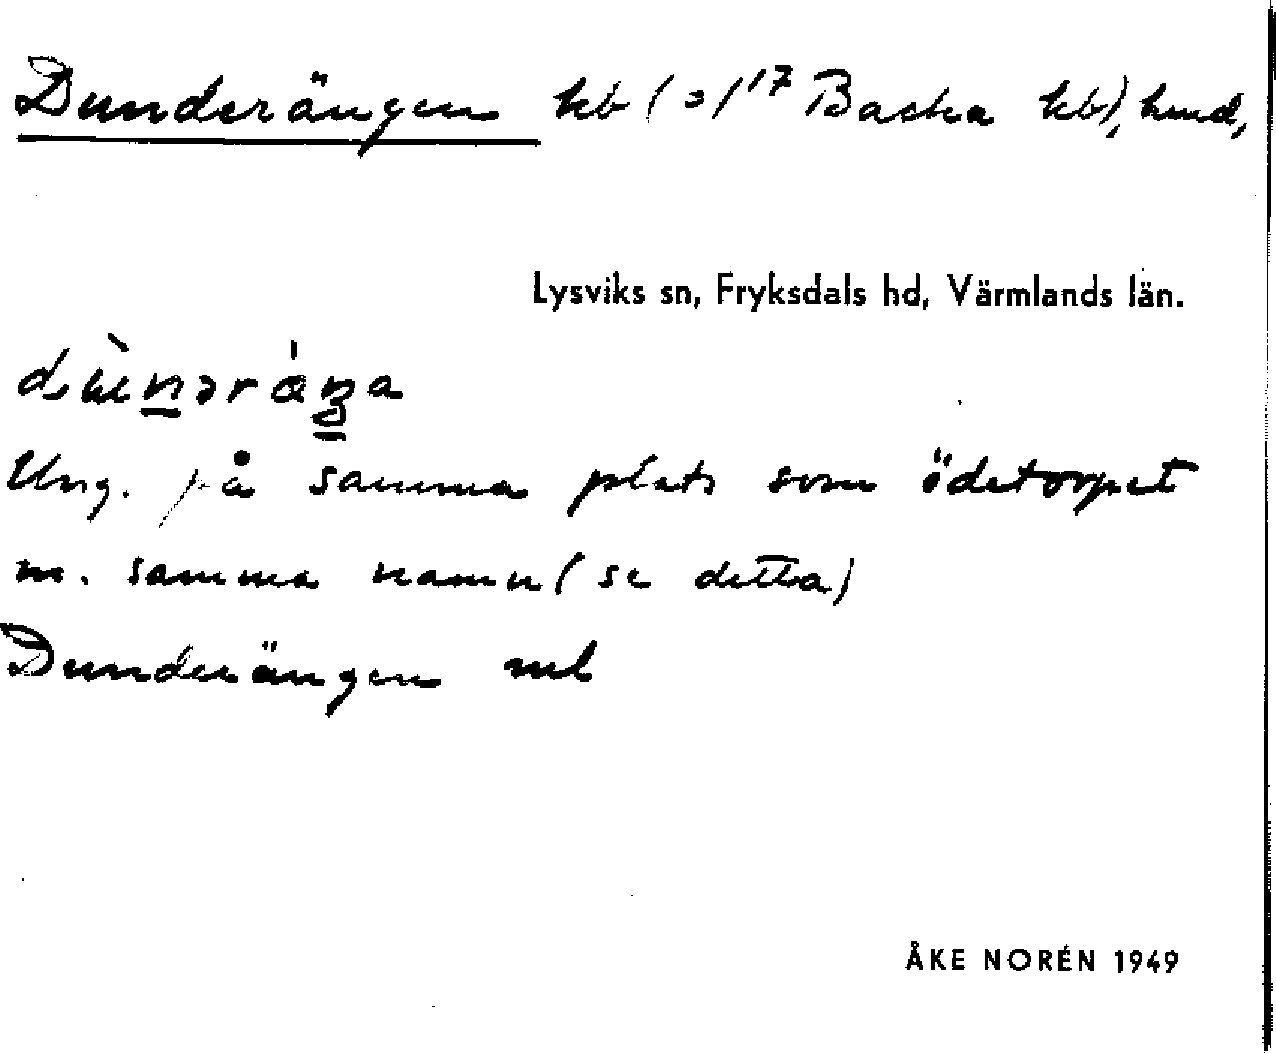 Dunderängen kb (=1/17 Backa kb), hmd,
Lysviks sn, Fryksdals hd, Värmlands län.
Ung. på samma plats som ödetorpet
m. samma namn (se detta)
Dunderängen
ÅKE NORÉN 1949